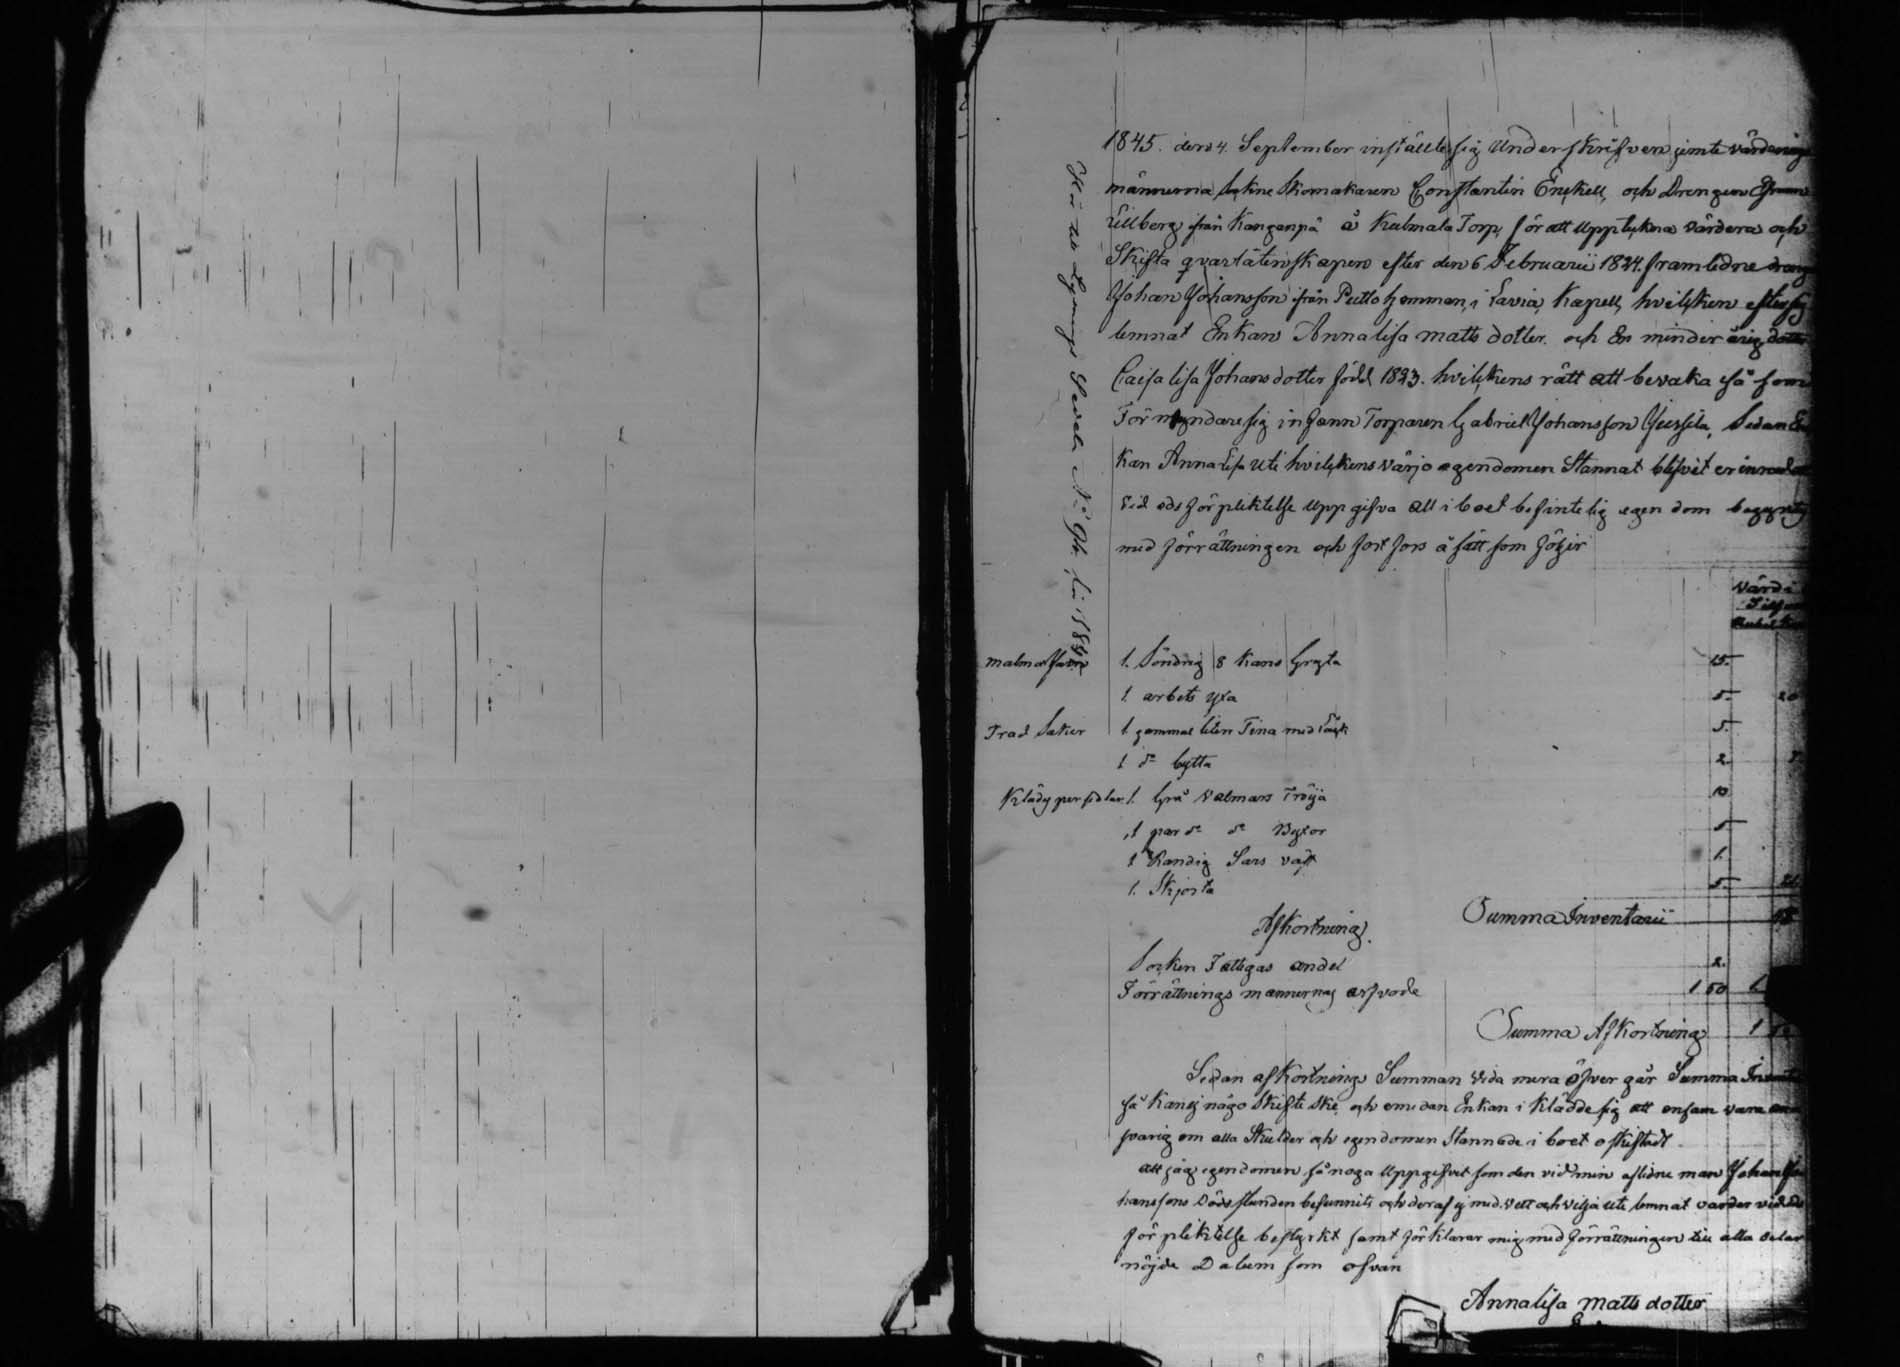 1845. den 4. September inställte sig Underskrifven jemte värderings
männerna Sokne Skomakaren Constantin Enckell och Drengen
Lillberg ifrån Kangenpä å Kulmala Torp, för att Upptekna värdera och
Skifta qvarlåtenskapen efter den 6 Februarii 1824. framledne dreng
Johan Johansson ifrån Putto hemman, i Lavia Kapell, hvilcken efter sig
lemnat Enkan Annalisa matts dotter. och En minder årig dotter
Caisa lisa Johans dotter född 1823. hvilckens rätt att bevaka så som
Förmyndare sig infann Torparen Gabriel Johansson Jussila, Sedan En
kan Anna Lisa uti hvilckens värjo egendomen Stannat blifvit erinrad
vid eds förpliktelse uppgifva all i boet befintelig egendom begyntes
med förrättningen och fort fors å sätt som följer
Värde
Rubel
malm och Jern 1. Söndrig 8 Kans Gryta 15.
1 arbets yxa 5. 20
Träd Saker 1 gammal liten Tina med Låck 5.
1 do bytta 2
Klädes persedlar 1. Grå Valmans Tröija 10
1 par do do Byxor 5
1 Randig Sars väst 1.
1. Skjorta 5. 21
Summa Inventarii 48
Afkortning.
Socken Fattigas andel 2.
Förrättnings mannernas arfvode 1 50 1.
Summa Afkortning 1
Sedan afkortnings Summan vida mera öfver går Summa
så kan ej någo Skifte Ske, och emedan Enkan i klädde sig att ensam vara an
svarig om alla Skulder och egendomen Stannade i boet oskiftadt.
att jag egendomen så noga uppgifvit som den vid min aflidne man Johan Jo
hanssons Döds stunden befunnits och deraf ej med Vett och vilja ute lemnat varder vid Eds
förpliktelse bestyrkt samt förklarar mig med förrättningen till alla delar
nöjde Datum som ofvan
Annalisa matts dotter